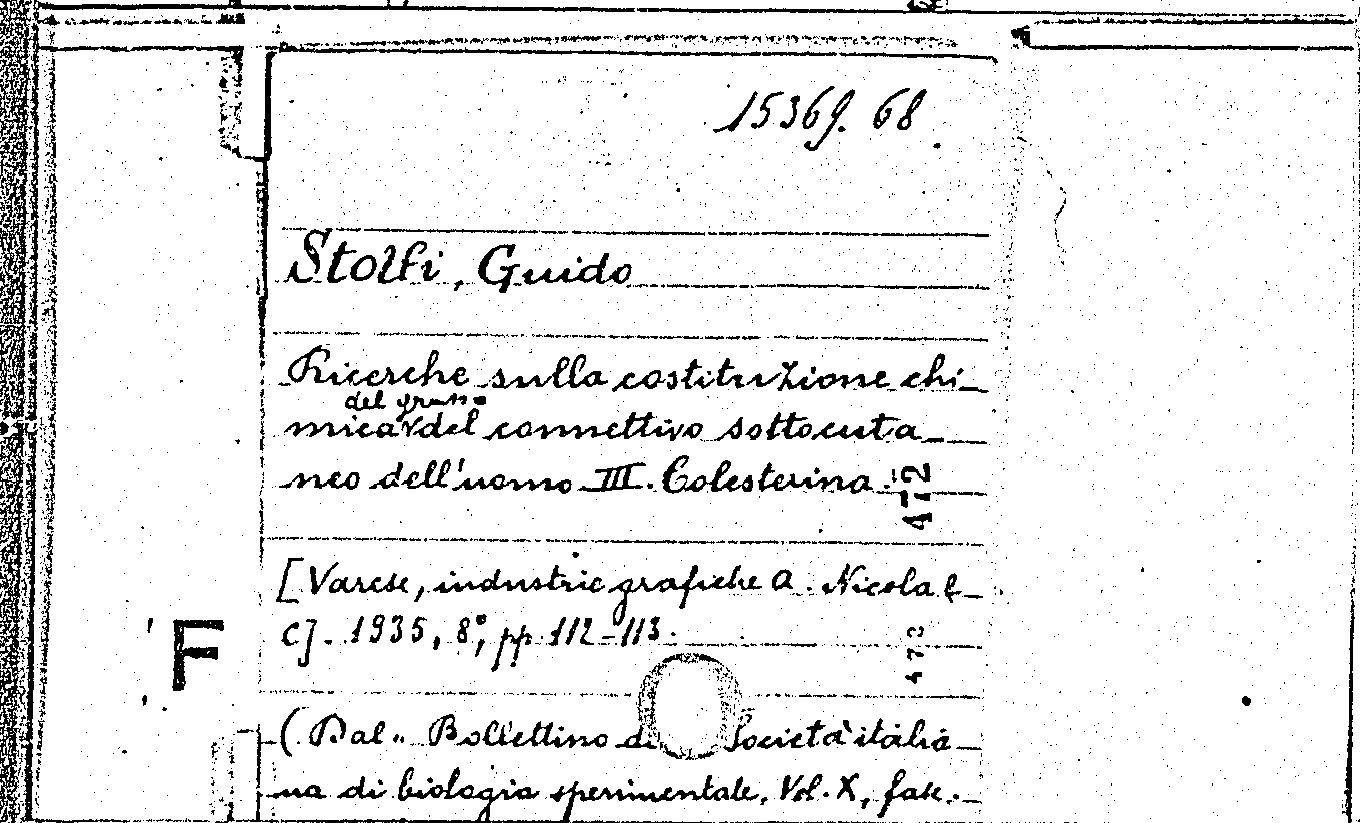 15369. 68
Stolfi, Guido
Ricerche sulla costituzione chi_
del grasso
mica del connettivo sottocuta_
neo dell'uomo III. Colesterina.
472
[Varese, industrie grafiche A. Nicola e
C]. 1935, 8°, pp. 112-113.
472
F
(Dal „ Bollettino Società italia_
na di biologia sperimentale, Vol. X, fasc.